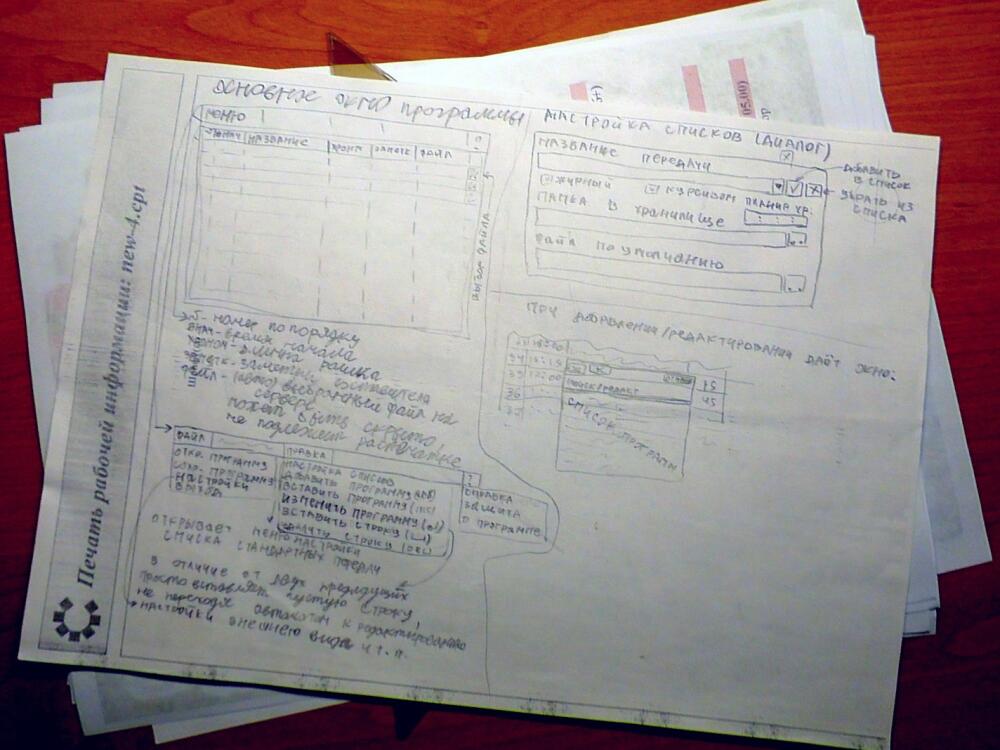 Печать рабочей информации: new-4.cpt
ОСНОВНОЕ ОКНО программы
МЕНЮ
НАЗВАНИЕ
ХРОНМ
ЗАМЕТК
ФАЙЛ
ВЫЗОВ ФАЙЛА
номер по порядку
НАЧ - время начала
ХРОНОМ - длина
ЗАМЕТК - заметки составителя
ФАЙЛ - (авто) выбранный файл на
сервере
может быть скрыто,
не подлежит распечатке
ФАЙЛ
ОТКР. ПРОГРАММУ
СОХР. ПРОГРАММУ
НАСТРОЙКИ
ВЫХОД
ПРАВКА
НАСТРОЙКА СПИСКОВ
ДОБАВИТЬ ПРОГРАММУ
ВСТАВИТЬ ПРОГРАММУ (INS)
ИЗМЕНИТЬ ПРОГРАММУ (↵)
ВСТАВИТЬ СТРОКУ (␣)
УДАЛИТЬ СТРОКУ (DEL)
?
СПРАВКА
ЗАЩИТА
О ПРОГРАММЕ
ОТКРЫВАЕТ МЕНЮ НАСТРОЙКИ
СПИСКА СТАНДАРТНЫХ ПЕРЕДАЧ
В отличие от двух предыдущих
просто вставляет пустую строку,
не переходя автоматом к редактированию
настройки внешнего вида и т.п.
НАСТРОЙКА СПИСКОВ (ДИАЛОГ)
X
НАЗВАНИЕ ПЕРЕДАЧИ
ДОБАВИТЬ
В СПИСОК
УБРАТЬ ИЗ
СПИСКА
ЖИРНЫЙ
КУРСИВОМ
ПАПКА В ХРАНИЛИЩЕ
Файл по умолчанию
ПРИ ДОБАВЛЕНИИ/РЕДАКТИРОВАНИИ ДАЁТ ОКНО:
34
35
36
45
СПИСОК ПРОГРАММ